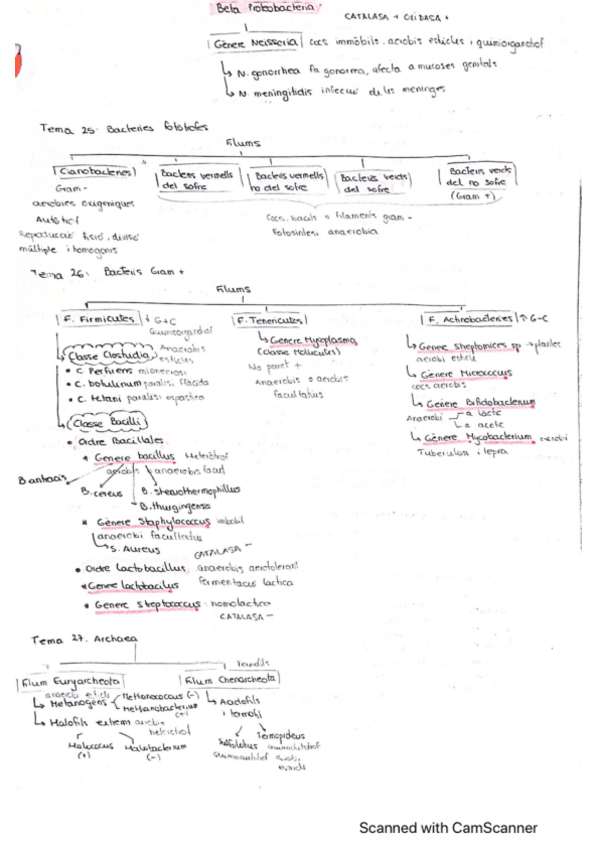 Beta Proteobacteria
CATALASA + OXIDASA +
Gènere Neisseria cocs immòbils. aerobis estrictes i quimiorganotrof
↳ N. gonorrhea fa gonorrea, afecta a mucoses genitals
↳ N. meningitidis infecció de les meninges
Tema 25: Bacteries fototrofes
Filums
Cianobacteries
Bacteris vermells del sofre
Bacteris vermells no del sofre
Bacteris verds del sofre
Bacteris verds del no sofre
(Gram +)
Gram -
aeròbies oxigeniques
Autòtrof
Reproducció fisió, divisió
múltiple i homogonis
Cocs, bacils o filaments gram -
Fotosintesi anaerobia
Tema 26: Bacteris Gram +
Filums
F. Firmicutes ↓ G+C
Quimioorganotrof
F. Tenericutes
F. Actinobacteries ↑ G-C
Classe Clostridia Anaerobis estrictes
• C. Perfringens mionecrosi
• C. botulinum paralisi flacida
• C. tetani paralisi espastica
↳ Genere Mycoplasma
(Classe Mollicutes)
No paret +
Anaerobis o aerobis
facultatius
↳ Genere Streptomices sp → plantes
aerobi estricte
↳ Genere Micrococcus
cocs aerobis
↳ Genere Bifidobacterium
Anaerobi a lactic
a acetic
↳ Gènere Mycobacterium aerobi
Tuberculosi i lepra
Classe Bacilli
• Ordre Bacillales
* Genere bacillus Heteròtrof
aerobis anaerobis facult
B. antracis
B. cereus
B. stearothermophillus
B. thuringensis
* Gènere Staphylococcus immobil
anaerobi facultatius
↳ S. Aureus
CATALASA -
• Ordre Lactobacillus anaerobis aerotolerant
* Genere lactobacillus fermentacio lactica
* Genere Streptococcus: homolactica
CATALASA -
Tema 27. Archaea
Filum Euryarcheota
Filum Crenarcheota
Termofils
anaerobi estricte
↳ Metanogens
Methanococcus (-)
Methanobacterium (+)
↳ Halofils extrem aerobis
heterotrof
Halococcus (+)
Halobacterium (-)
↳ Acidofils
i termofil
Sulfolobus
Termoproteus
Scanned with CamScanner